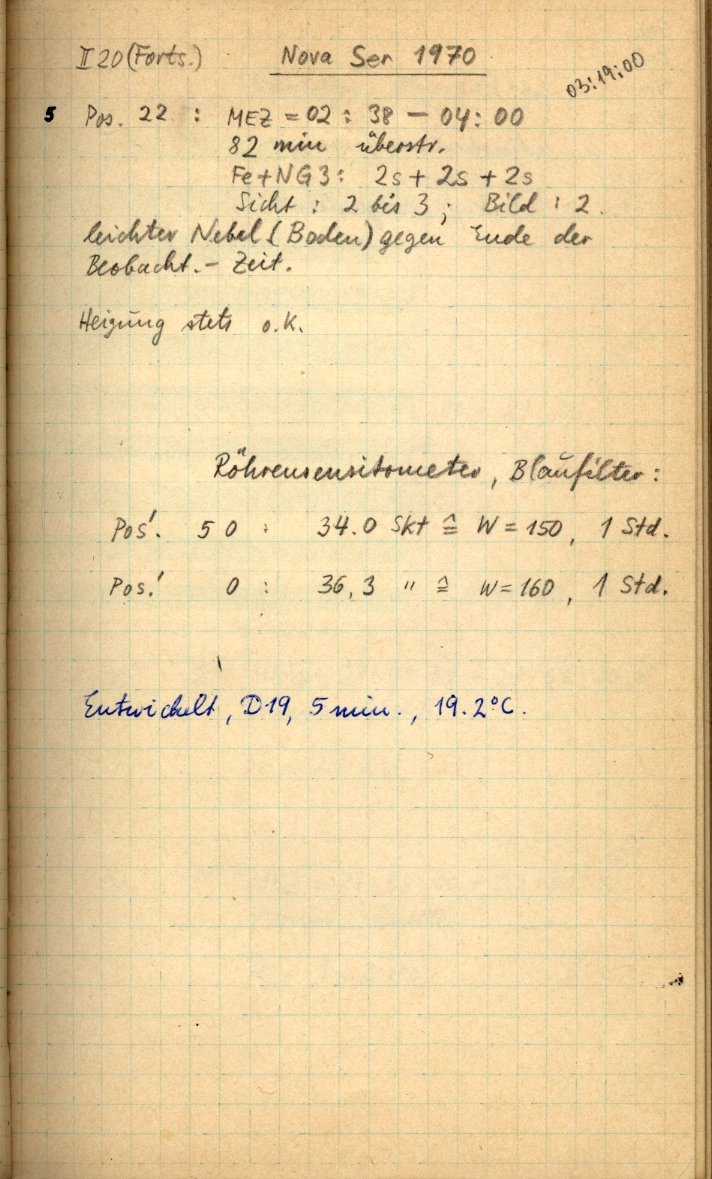 II 20 (Forts.) Nova Ser 1970
03:19:00
5 Pos. 22 : MEZ = 02 : 38 – 04 : 00
82 min überstr.
Fe+NG3: 2s + 2s + 2s
Sicht : 2 bis 3 ; Bild : 2.
leichter Nebel (Boden) gegen Ende der
Beobacht.- Zeit.
Heizung stets o.K.
Röhrensensitometer, Blaufilter :
Pos'. 50 : 34.0 Skt ≙ W = 150, 1 Std.
Pos.' 0 : 36,3 " ≙ W = 160, 1 Std.
Entwickelt, D19, 5 min., 19.2°C.